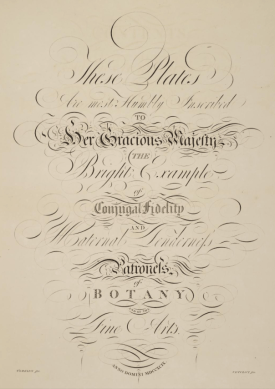 These Plates
Are most Humbly Inscribed
TO
Her Gracious Majesty
THE
Bright Example
of
Conjugal Fidelity
AND
Maternal Tenderness
Patroness
of
BOTANY
Fine Arts.